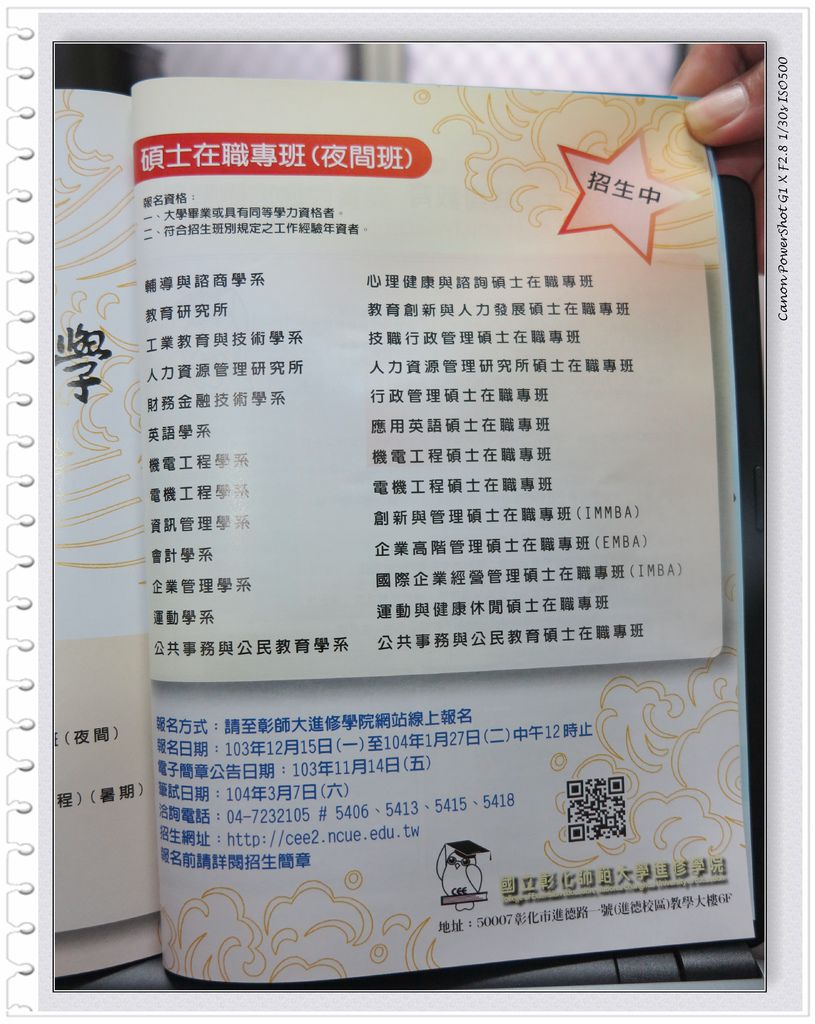 碩士在職專班(夜間班)
招生中
報名資格：
一、大學畢業或具有同等學力資格者。
二、符合招生班別規定之工作經驗年資者。
輔導與諮商學系 心理健康與諮詢碩士在職專班
教育研究所 教育創新與人力發展碩士在職專班
工業教育與技術學系 技職行政管理碩士在職專班
人力資源管理研究所 人力資源管理研究所碩士在職專班
財務金融技術學系 行政管理碩士在職專班
英語學系 應用英語碩士在職專班
機電工程學系 機電工程碩士在職專班
電機工程學系 電機工程碩士在職專班
資訊管理學系 創新與管理碩士在職專班(IMMBA)
會計學系 企業高階管理碩士在職專班(EMBA)
企業管理學系 國際企業經營管理碩士在職專班(IMBA)
運動學系 運動與健康休閒碩士在職專班
公共事務與公民教育學系 公共事務與公民教育碩士在職專班
報名方式：請至彰師大進修學院網站線上報名
報名日期：103年12月15日(一)至104年1月27日(二)中午12時止
電子簡章公告日期：103年11月14日(五)
筆試日期：104年3月7日(六)
洽詢電話：04-7232105 # 5406、5413、5415、5418
招生網址：http://cee2.ncue.edu.tw
報名前請詳閱招生簡章
CEE
國立彰化師範大學進修學院
地址：50007彰化市進德路一號(進德校區)教學大樓6F
學
(夜間)
程)(暑期)
Canon PowerShot G1 X F2.8 1/30s ISO500